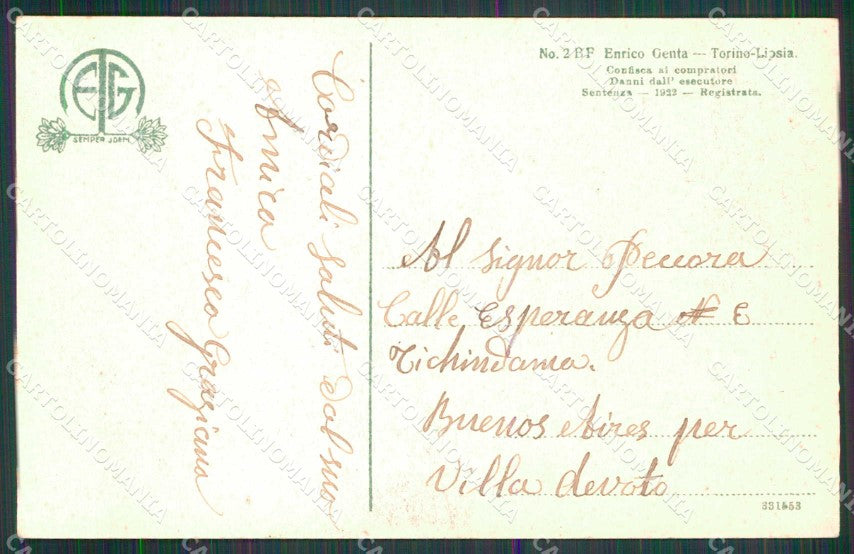 EG
SEMPER IDEM
No. 2 BF Enrico Genta — Torino-Lipsia.
Confisca ai compratori
Danni dall' esecutore
Sentenza — 1922 — Registrata.
Cordiali saluti dal suo
Amico
Francesco Graziano
Al signor Peccora
Calle Esperanza # 6
Tichindama.
Buenos Aires per
Villa devoto
331553
CARTOLINOMANIA